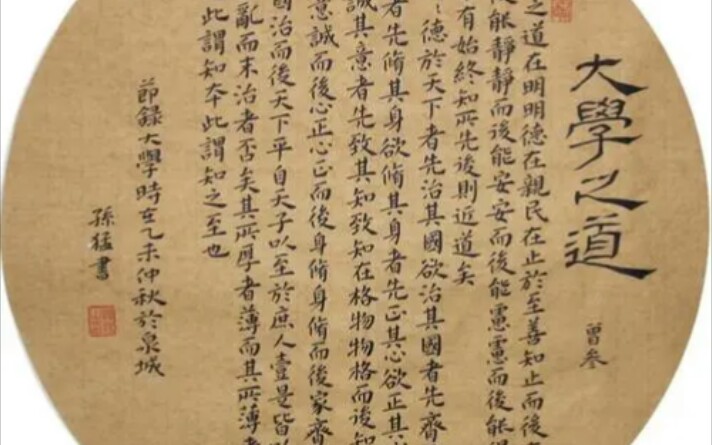 大學之道
曾參
之道在明明德在親民在止於至善知止而後
後能靜靜而後能安安而後能慮慮而後能得
有始終知所先後則近道矣
〻德於天下者先治其國欲治其國者先齊
者先脩其身欲脩其身者先正其心欲正其
誠其意者先致其知致知在格物物格而後知
意誠而後心正心正而後身脩身脩而後家齊
國治而後天下平自天子以至於庶人壹是皆以
亂而末治者否矣其所厚者薄而其所薄者
此謂知本此謂知之至也
節錄大學時在乙未仲秋於泉城
孫猛書